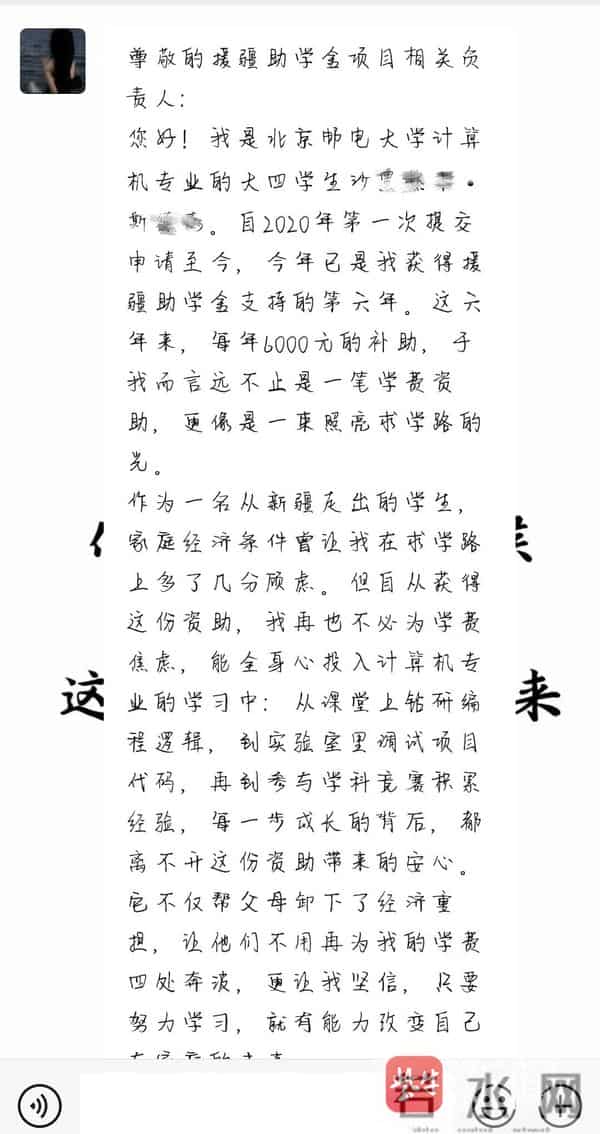 尊敬的援疆助学金项目相关负
责人：
您好！我是北京邮电大学计算
机专业的大四学生沙
斯 。自2020年第一次提交
申请至今，今年已是我获得援
疆助学金支持的第六年。这六
年来，每年6000元的补助，于
我而言远不止是一笔学费资
助，更像是一束照亮求学路的
光。
作为一名从新疆走出的学生，
家庭经济条件曾让我在求学路
上多了几分顾虑。但自从获得
这份资助，我再也不必为学费
焦虑，能全身心投入计算机专
业的学习中：从课堂上钻研编
程逻辑，到实验室里调试项目
代码，再到参与学科竞赛积累
经验，每一步成长的背后，都
离不开这份资助带来的安心。
它不仅帮父母卸下了经济重
担，让他们不用再为我的学费
四处奔波，更让我坚信，只要
努力学习，就有能力改变自己
这 来